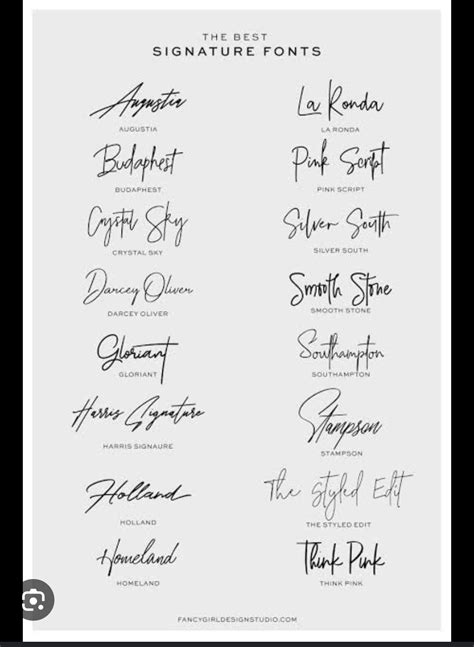 THE BEST
SIGNATURE FONTS
Augustia
AUGUSTIA
La Ronda
LA RONDA
Budaphest
BUDAPHEST
Pink Script
PINK SCRIPT
Crystal Sky
CRYSTAL SKY
Silver South
SILVER SOUTH
Darcey Oliver
DARCEY OLIVER
Smooth Stone
SMOOTH STONE
Gloriant
GLORIANT
Southampton
SOUTHAMPTON
Harris Signature
HARRIS SIGNAURE
Stampson
STAMPSON
Holland
HOLLAND
The Styled Edit
THE STYLED EDIT
Homeland
HOMELAND
Think Pink
THINK PINK
FANCYGIRLDESIGNSTUDIO.COM